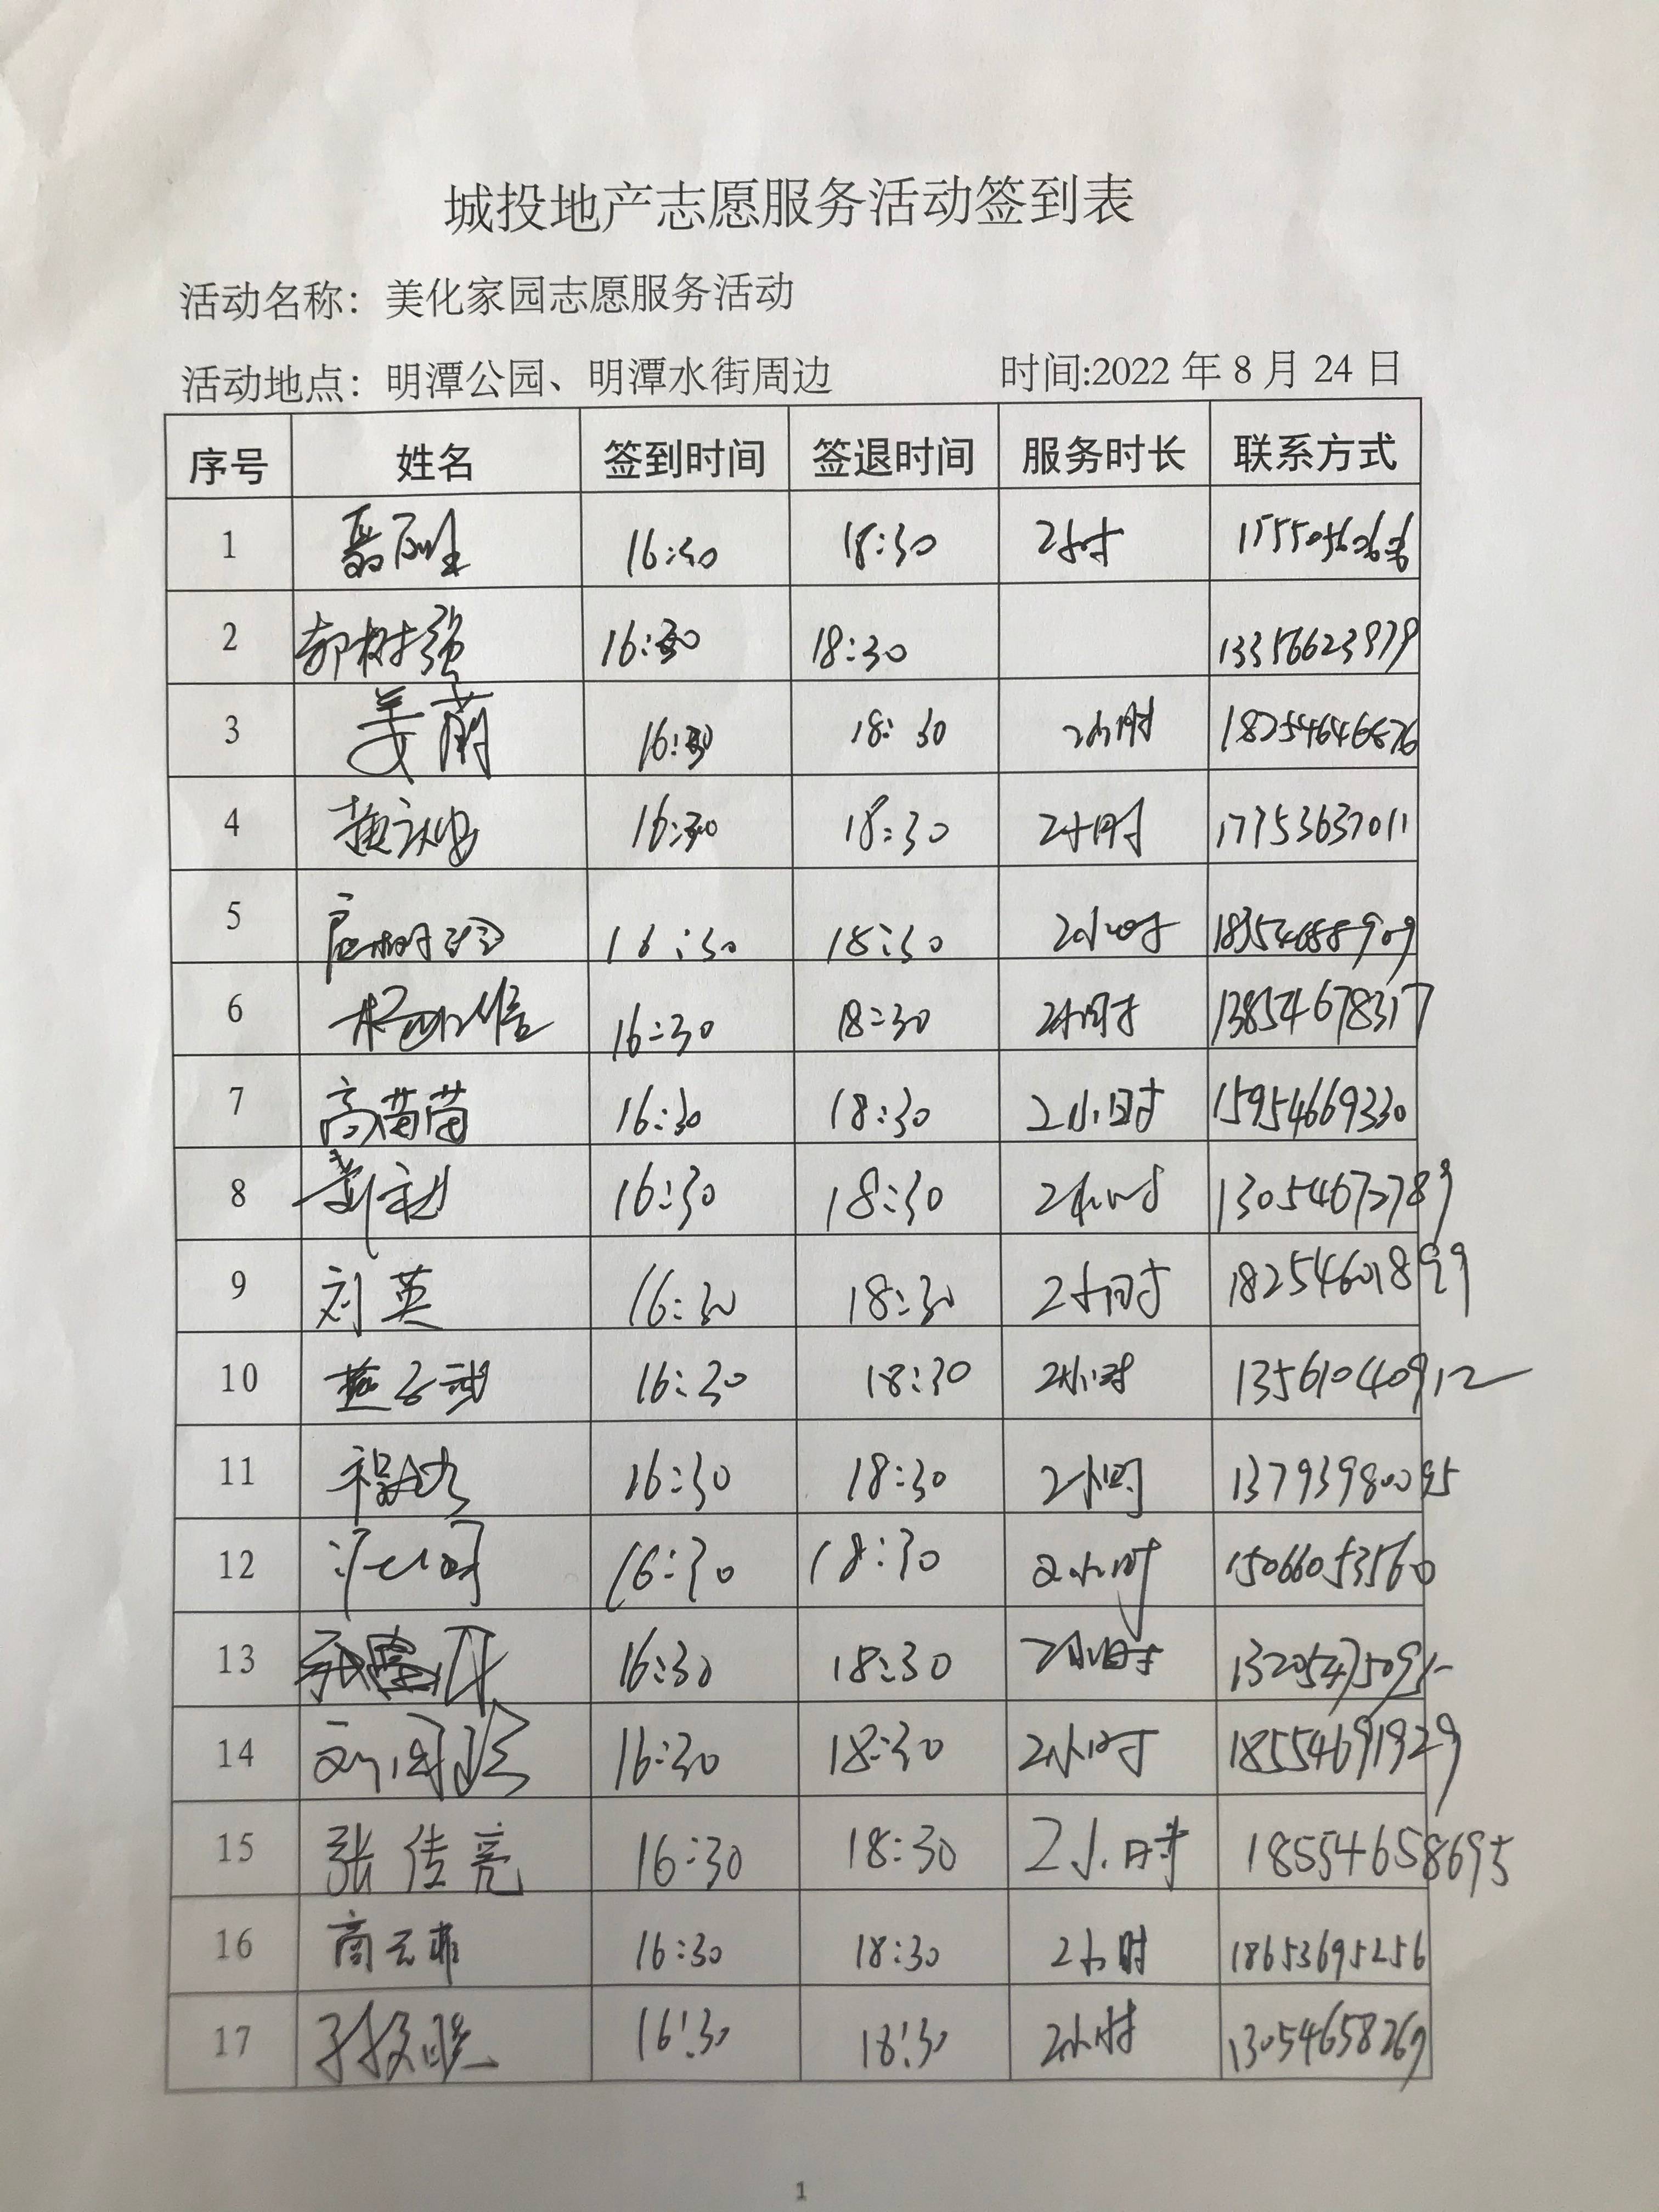 城投地产志愿服务活动签到表
活动名称：美化家园志愿服务活动
活动地点：明潭公园、明潭水街周边 时间:2022 年 8 月 24 日
序号 姓名 签到时间 签退时间 服务时长 联系方式
1 16:30 18:30 2小时
2 郭树强 16:30 18:30 13356623979
3 姜蔚 16:30 18:30 2小时 18254646876
4 16:30 18:30 2小时 17753637011
5 16:30 18:30 2小时 18354688909
6 16:30 18:30 2小时 13854678317
7 高苗苗 16:30 18:30 2小时 15954669330
8 16:30 18:30 2小时 13054673789
9 刘英 16:30 18:30 2小时 18254601899
10 燕子武 16:30 18:30 2小时 13561040912
11 16:30 18:30 2小时 13793980095
12 16:30 18:30 2小时 15066053560
13 16:30 18:30 2小时
14 16:30 18:30 2小时 18554691929
15 张传亮 16:30 18:30 2小时 18554658695
16 商云菲 16:30 18:30 2小时 18653695256
17 16:30 18:30 2小时 13054658269
1